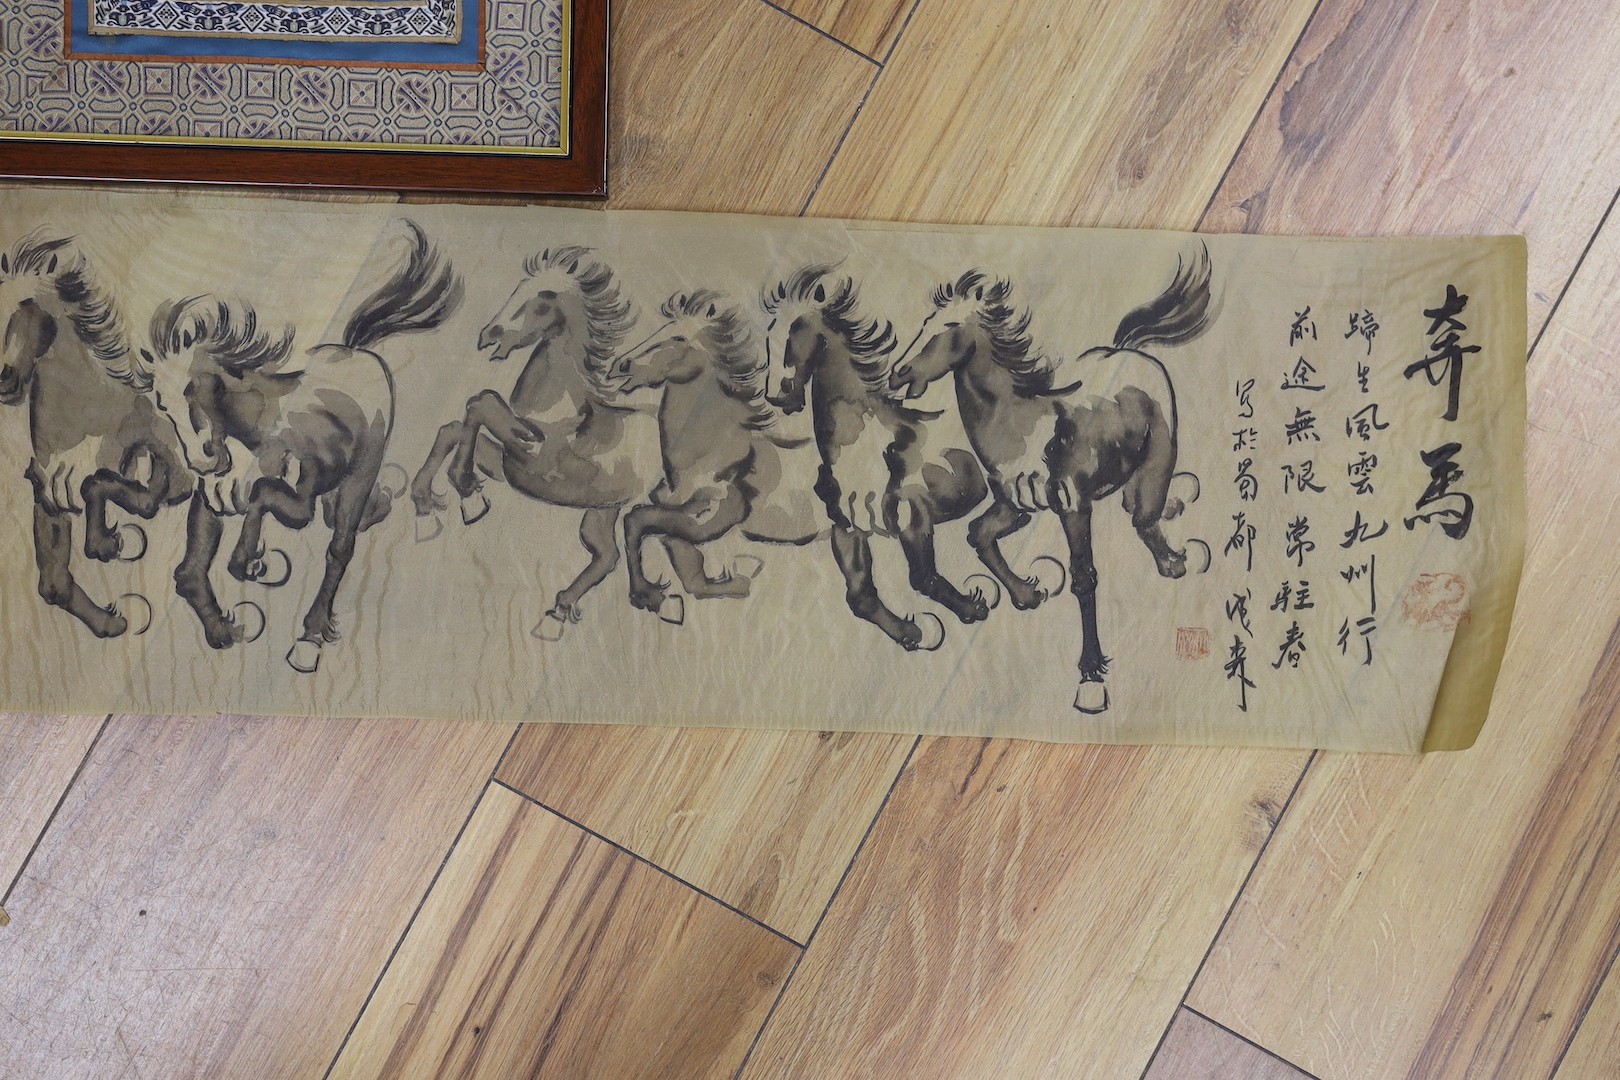 奔馬
蹄生風雲九州行
前途無限常駐春
写於蜀都